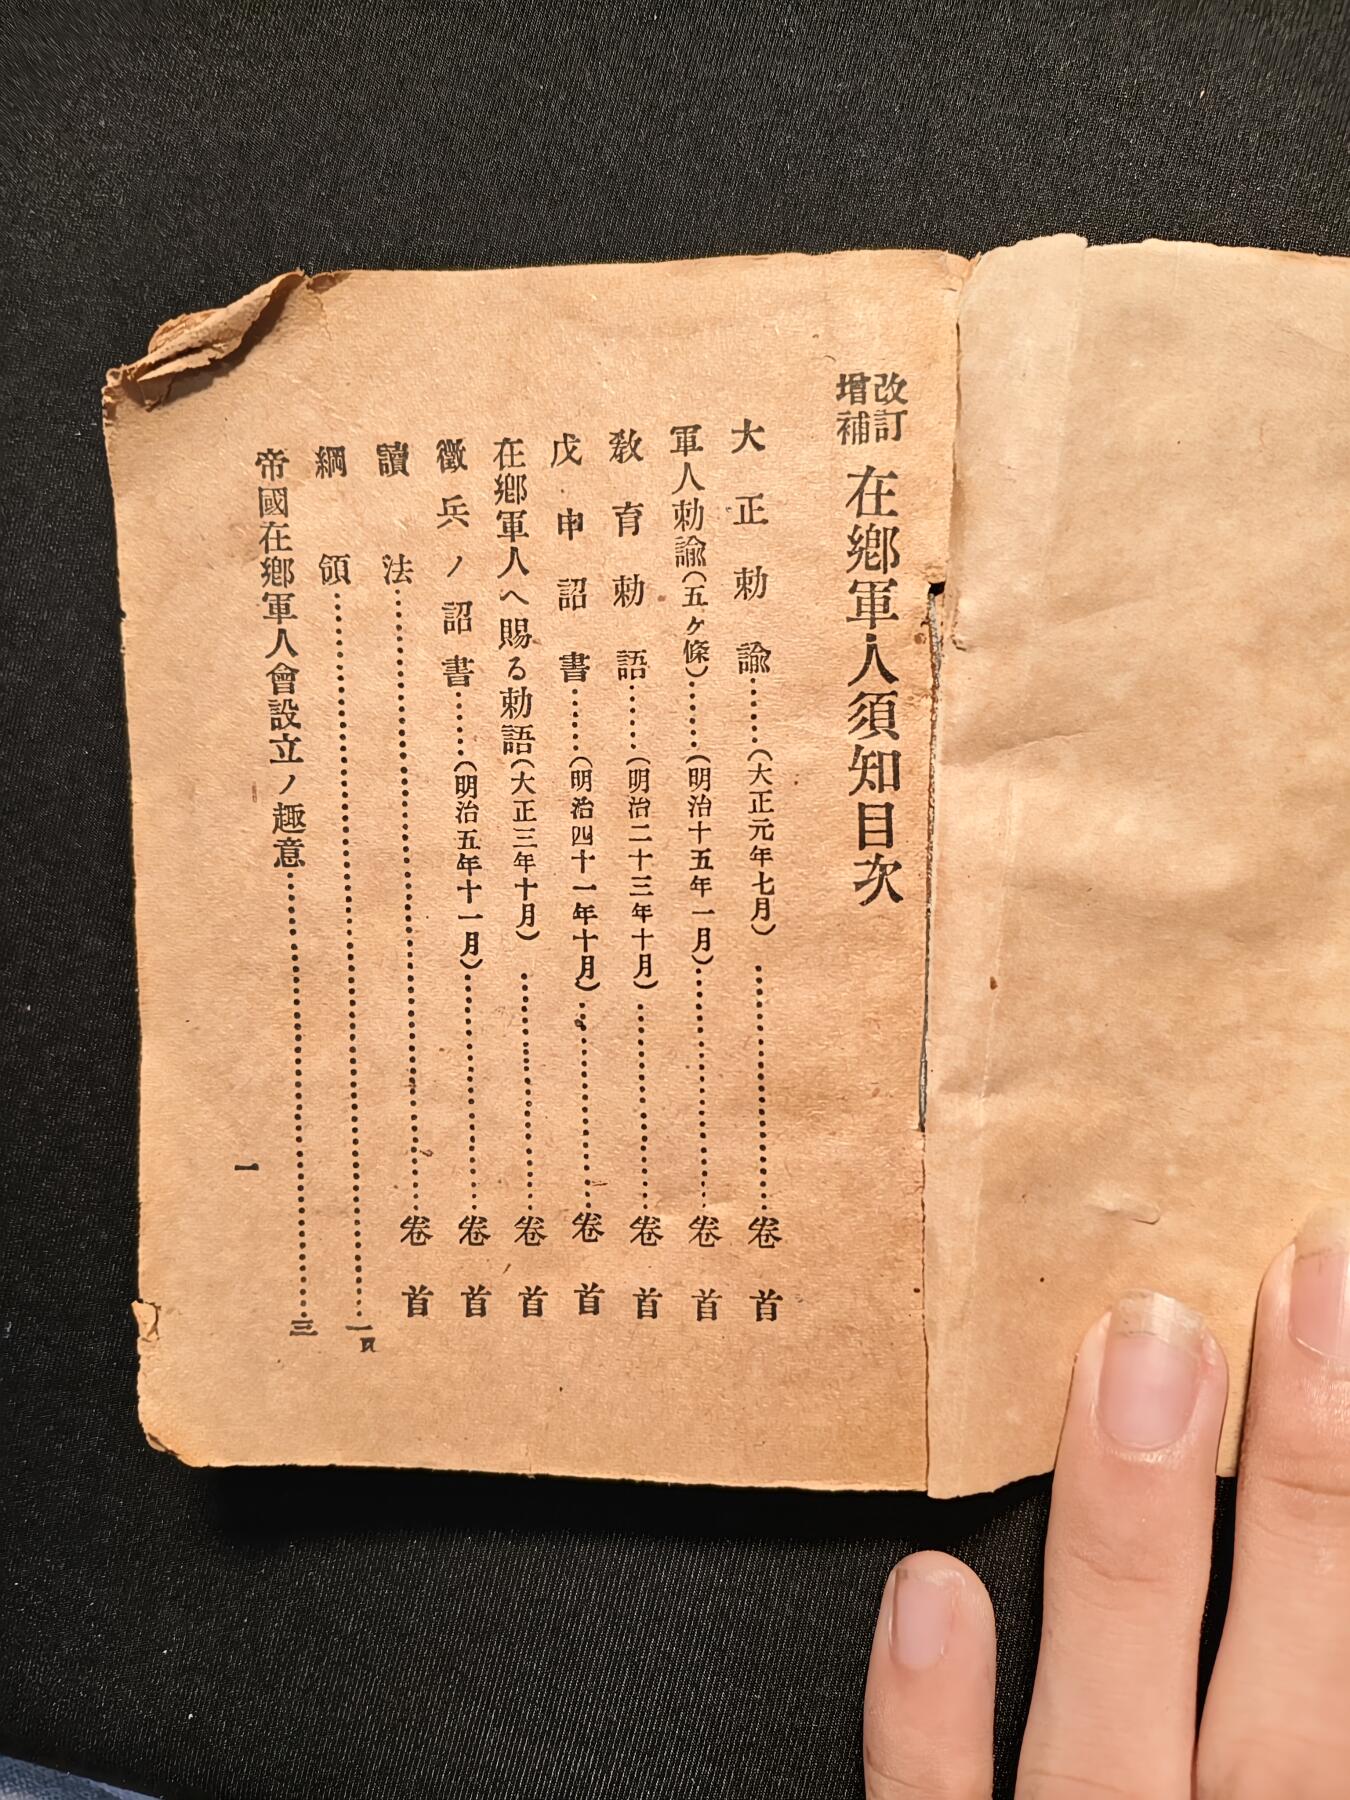 改訂增補 在鄕軍人須知目次
大正勅諭……(大正元年七月)……卷首
軍人勅諭(五ケ條)……(明治十五年一月)……卷首
敎育勅語……(明治二十三年十月)……卷首
戊申詔書……(明治四十一年十月)……卷首
在鄕軍人へ賜る勅語(大正三年十月)……卷首
徵兵ノ詔書……(明治五年十一月)……卷首
讀法……卷首
綱領……一頁
帝國在鄕軍人會設立ノ趣意……三
一